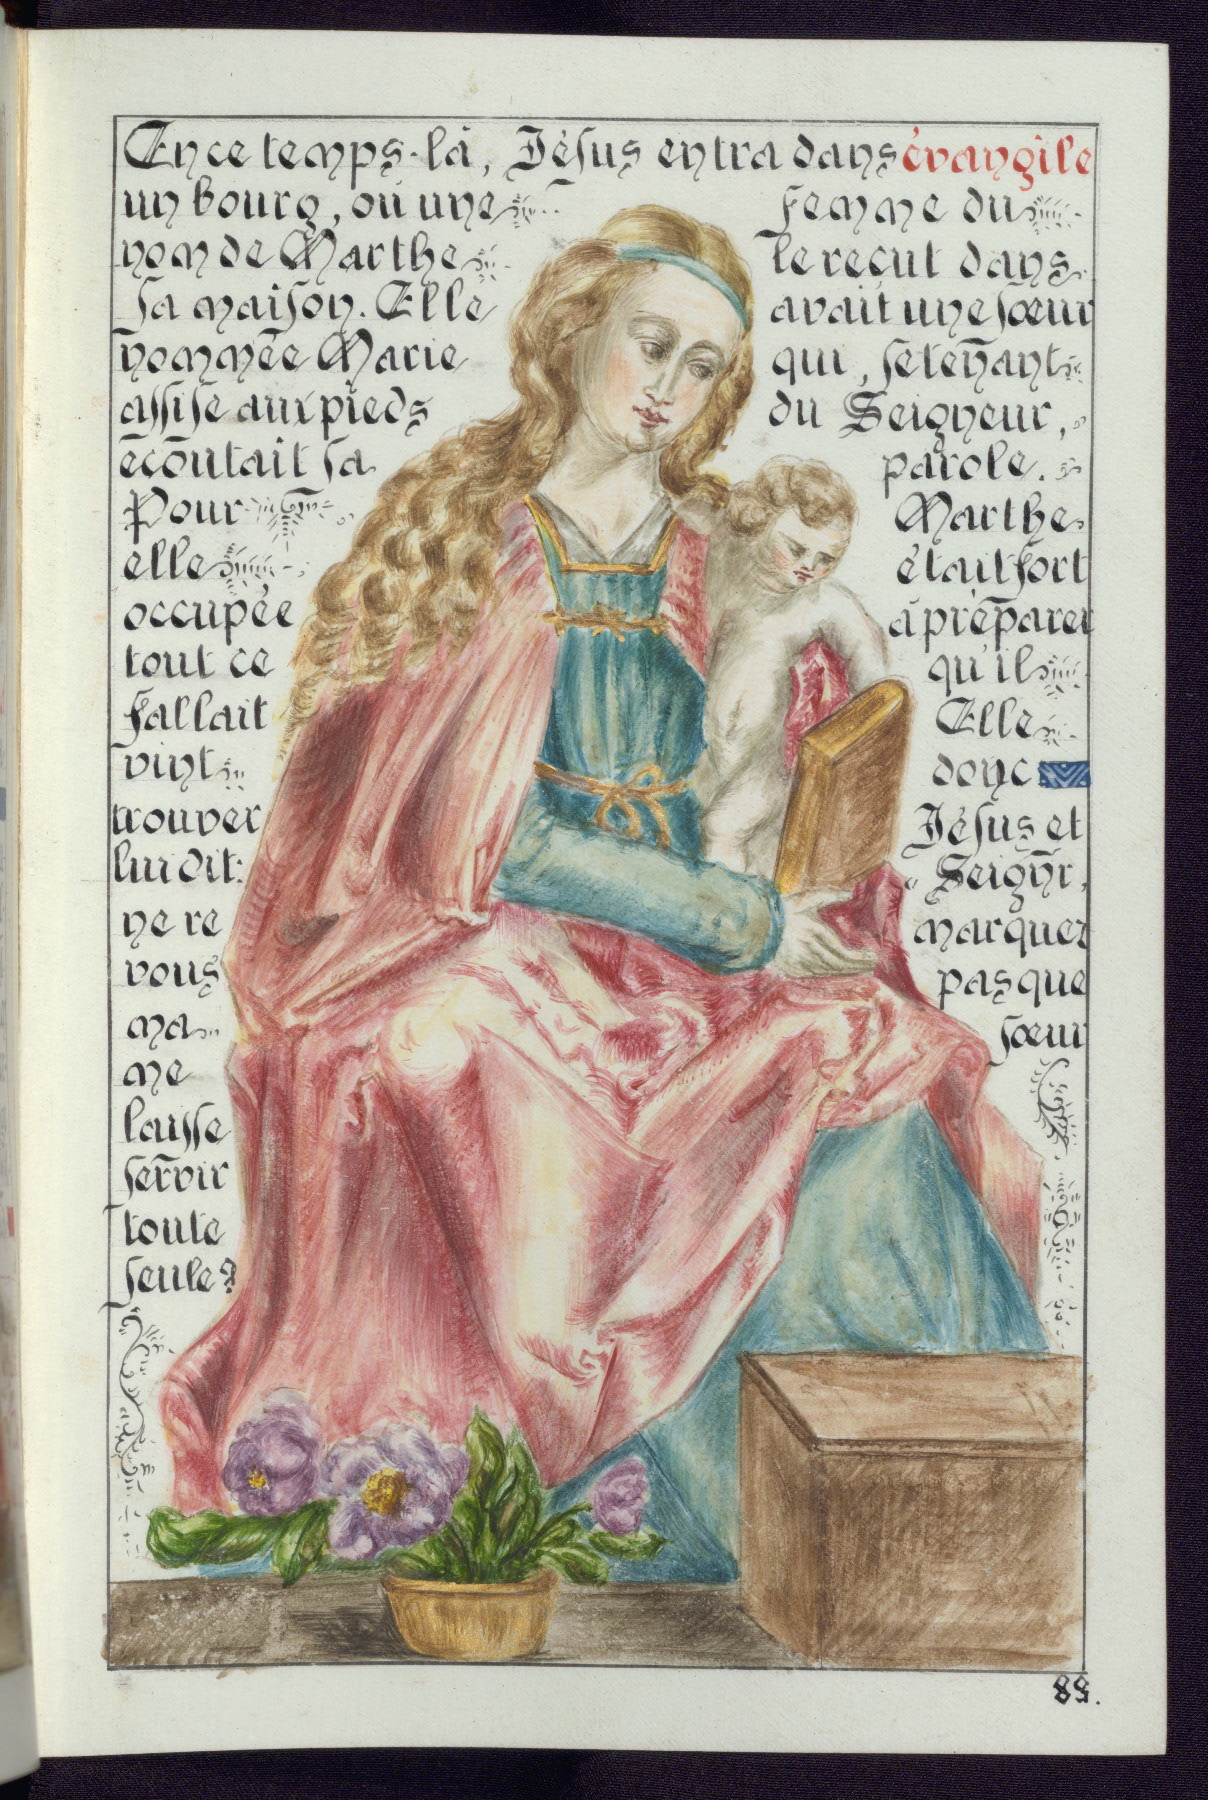 En ce temps-là, Jésus entra dans évangile
un bourg, où une femme du
nom de Marthe le reçut dans
sa maison. Elle avait une sœur
nommée Marie qui, se tenant
assise aux pieds du Seigneur,
écoutait sa parole.
Pour Marthe
elle était fort
occupée à préparer
tout ce qu'il
fallait Elle
vint donc
trouver Jésus et
lui dit: "Seignr,
ne re marquez
vous pas que
ma sœur
me
laisse
servir
toute
seule?
85.